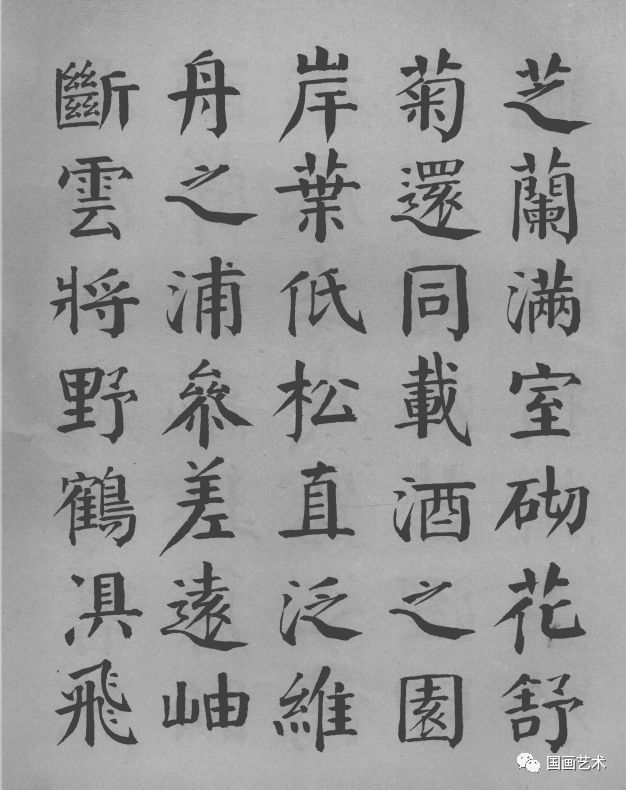 芝蘭滿室砌花舒
菊還同載酒之園
岸葉低松直泛維
舟之浦參差遠岫
斷雲將野鶴俱飛
国画艺术